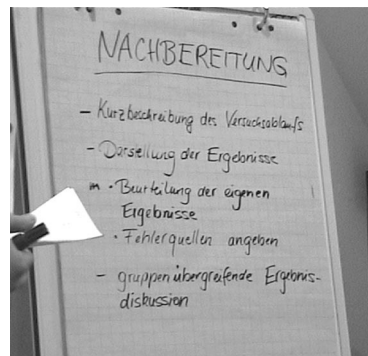 NACHBEREITUNG
- Kurzbeschreibung des Versuchsablaufs
- Darstellung der Ergebnisse
m • Beurteilung der eigenen
Ergebnisse
• Fehlerquellen angeben
- gruppenübergreifende Ergebnis-
diskussion